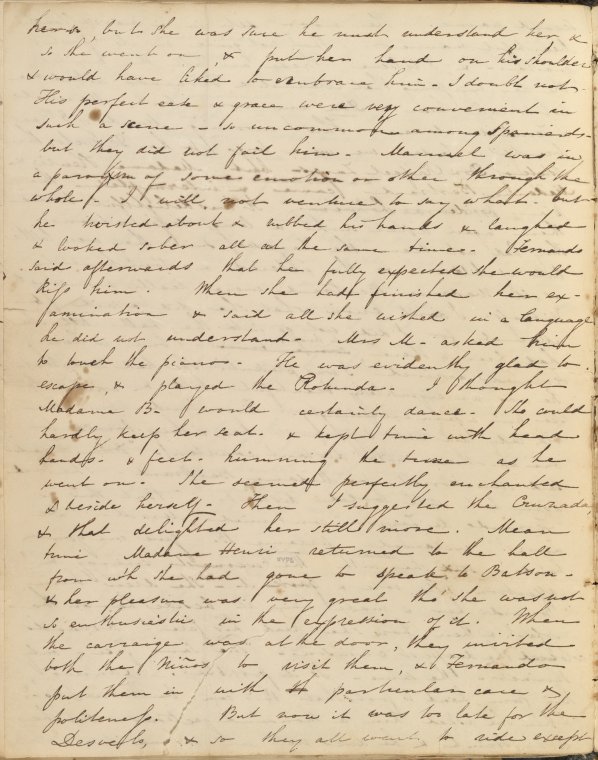 her, but she was sure he must understand her &
so she went on, & put her hand on his shoulder
& would have liked to embrace him - I doubt not.
His perfect ease & grace were very convenient in
such a scene - so uncommon among Spaniards -
but they did not fail him - Manuel was in
a paroxysm of some emotion or other through the
whole - I will not venture to say what - but
he twisted about & rubbed his hands & laughed
& looked sober all at the same time. Fernando
said afterwards that he fully expected she would
kiss him. When she had finished her ex-
amination & said all she wished in a language
he did not understand - Mrs M - asked him
to touch the piano - He was evidently glad to
escape, & played the Rotunda - I thought
Madame B - would certainly dance - She could
hardly keep her seat - & kept time with head
hands - & feet - humming the tune as he
went on - She seemed perfectly enchanted
& beside herself - Then I suggested the Cruzada,
& that delighted her still more. Mean
time Madame Henri returned to the hall
from wh she had gone to speak to Batson -
& her pleasure was very great tho' she was not
so enthusiastic in the expression of it. When
the carraige was at the door, they invited
both the Niños to visit them, & Fernando
put them in with particular care &
politeness. But now it was too late for the
& so they all went to ride except